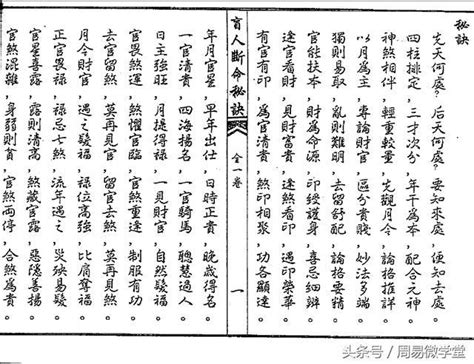 秘訣
先天何處？后天何處？要知來處，便知去處
四柱排定，三才次分，年干為本，配合元辰
神煞相伴，輕重較量，先觀月令，論格推詳
以月為主，專論財官，區分貴賤，妙法多端
獨則易取，亂則難明，去留舒配，論格要精
官能扶本，財為命源，印綬護身，喜忌細辨
逢官看財，見財富貴，逢煞看印，遇印榮華
逢印有官，為官清貴，煞印相聚，功各顯達。
盲人斷命秘訣 全一卷 一
年月官星，早年出仕，日時正貴，晚歲得名
一官清貴，四海揚名，一官騎馬，聰慧過人
日主強旺，月提得祿，一見財官，自然發福
官畏煞運，煞畏官運，制服有功
去官留煞，莫再見官，留官去煞，莫再見煞
月令財官，遇之發福，祿位高強，比肩奪福
正官畏祿，祿忌七煞，流年遇之，災殃易發
官星喜露，露則清高，煞藏官露，惡隱善揚
官煞混雜，身弱則貧，官煞兩停，合煞為貴。
头条号／周易微学堂